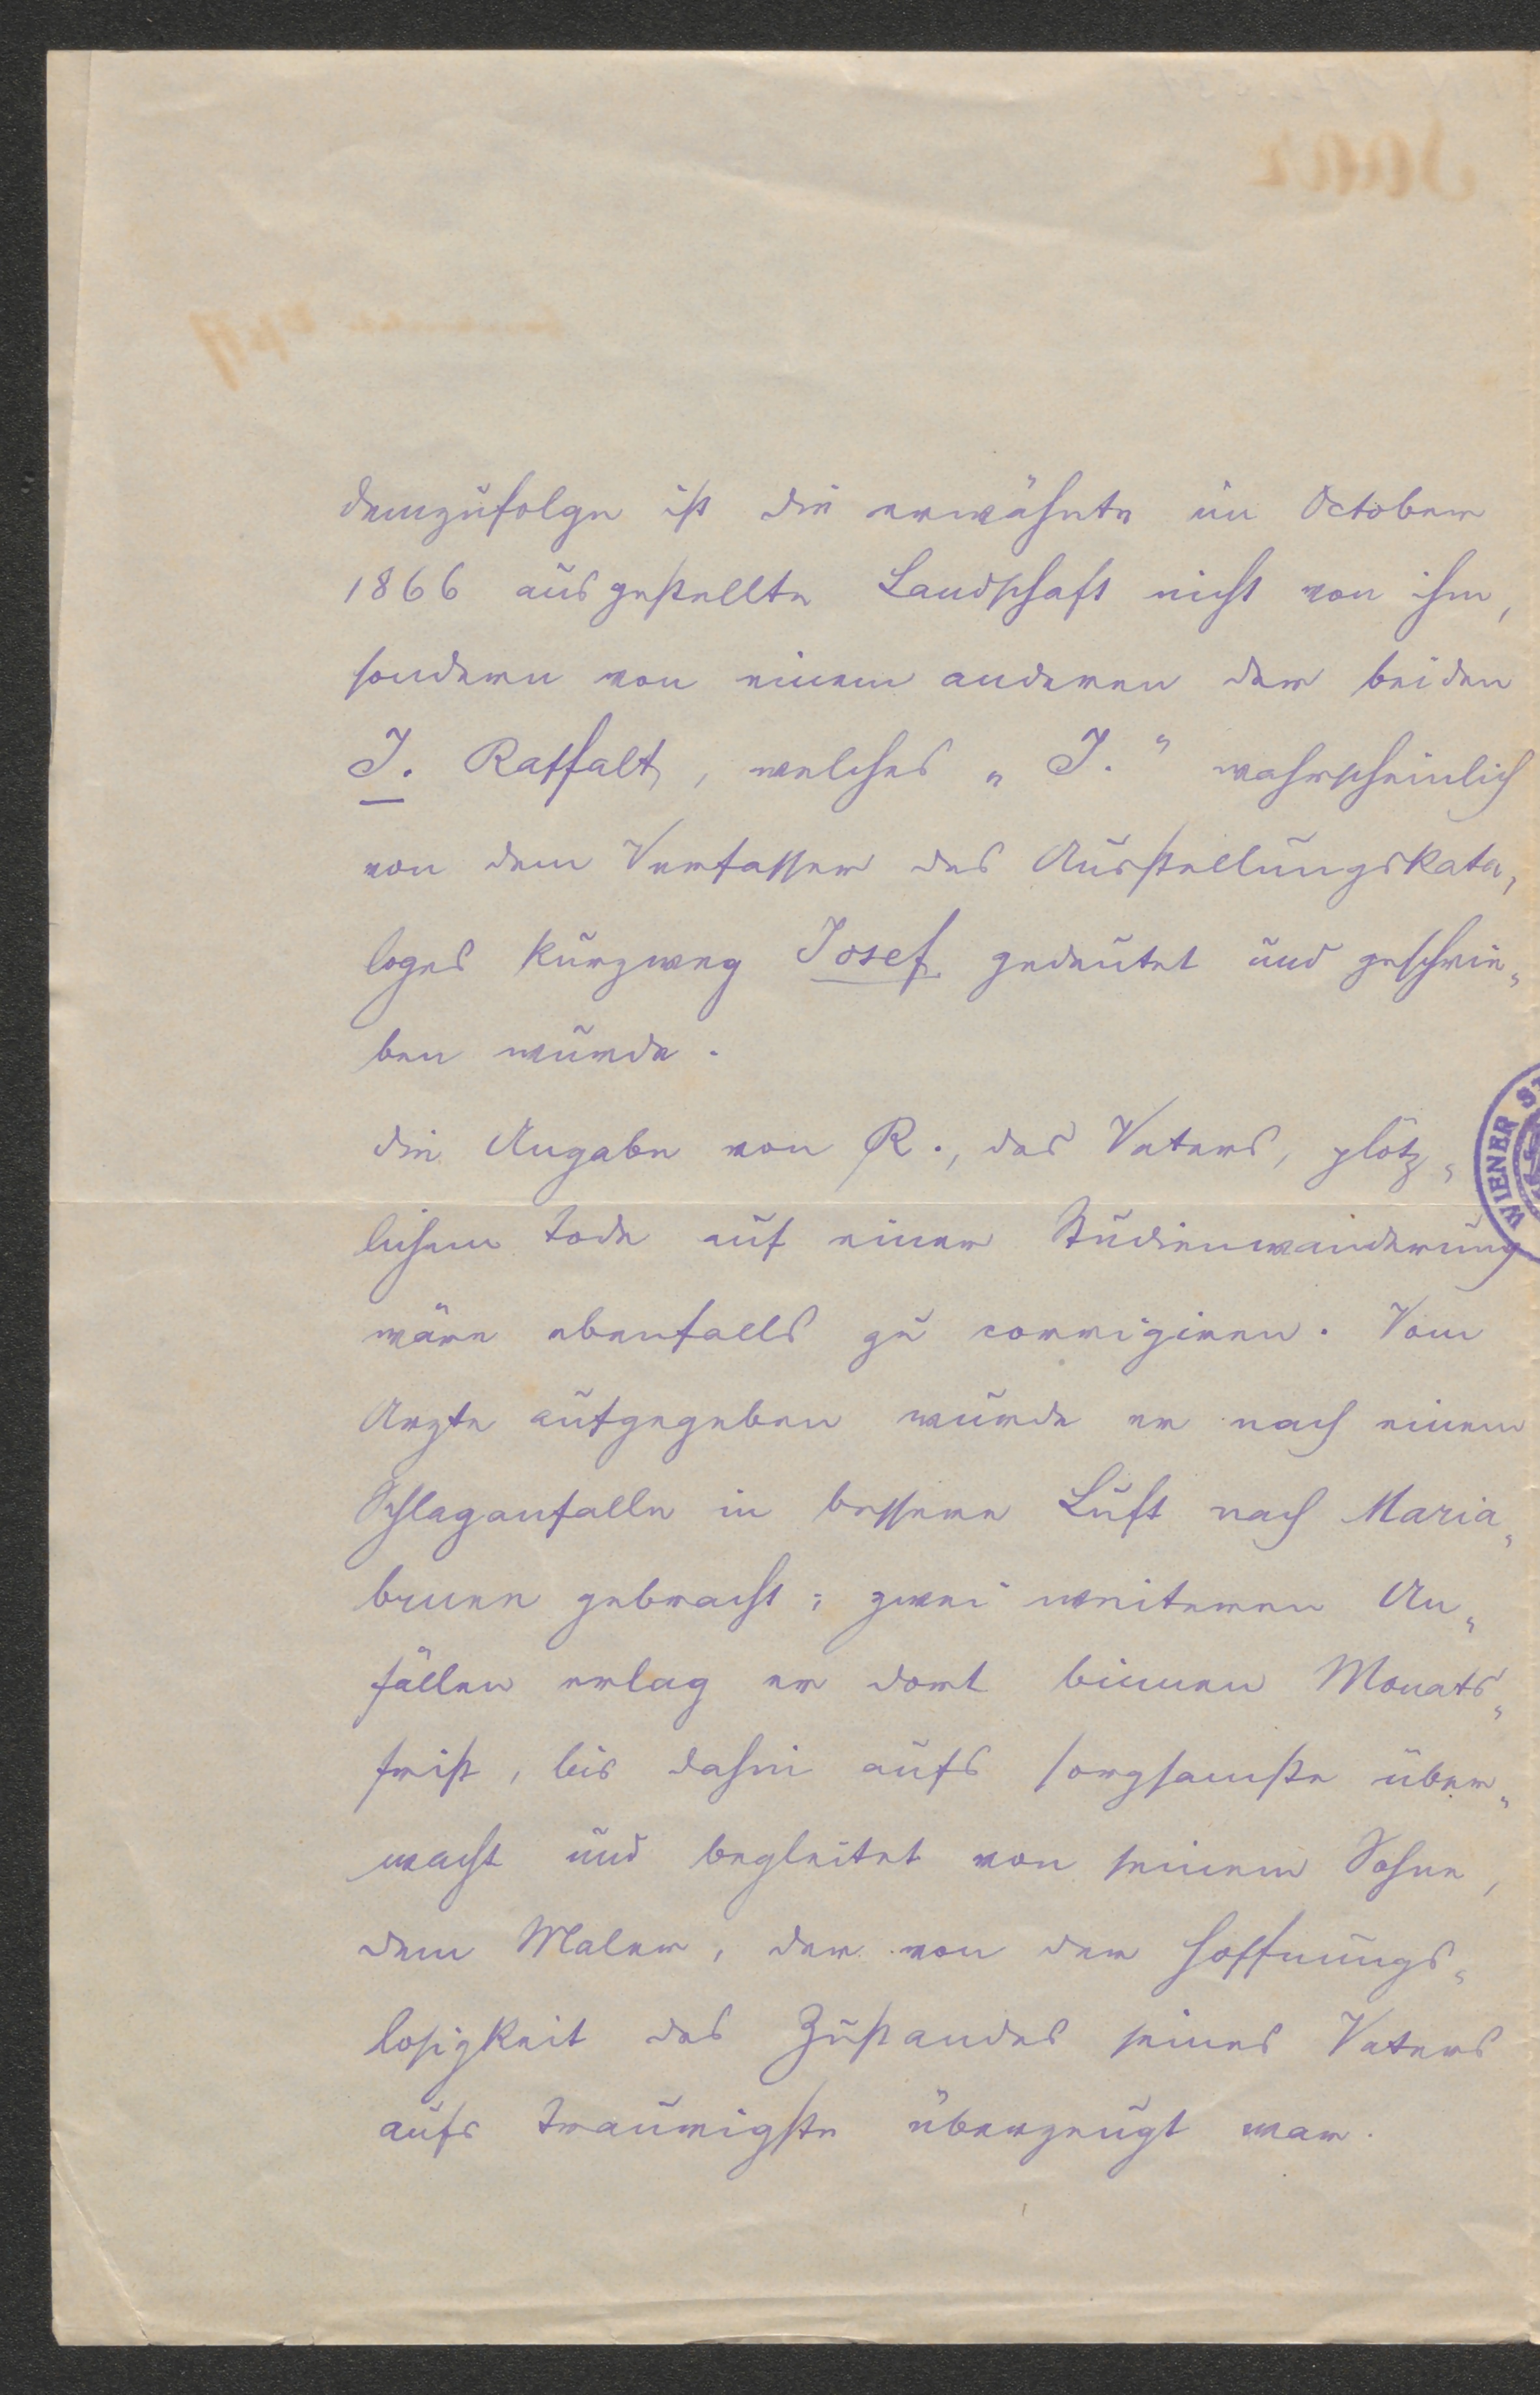 demzufolge ist die erwähnte im October
1866 ausgestellte Landschaft nicht von ihm,
sondern von einem anderen der beiden
J. Raffalt, welches „J.“ wahrscheinlich
von dem Verfasser des Ausstellungskata„
loges kurzweg Josef gedeutet und geschrie„
ben wurde.
die Angabe von R., des Vaters, plötz„
lichem Tode auf einer Studienwanderung
wäre ebenfalls zu corrigiren. Vom
Arzte aufgegeben wurde er nach einem
Schlaganfalle in bessere Luft nach Maria„
brunn gebracht; zwei weiteren An„
fällen erlag er dort binnen Monats„
frist, bis dahin aufs sorgsamste über„
wacht und begleitet von seinem Sohne,
dem Maler, der von der Hoffnungs„
losigkeit des Zustandes seines Vaters
aufs traurigste überzeugt war.
WIENER